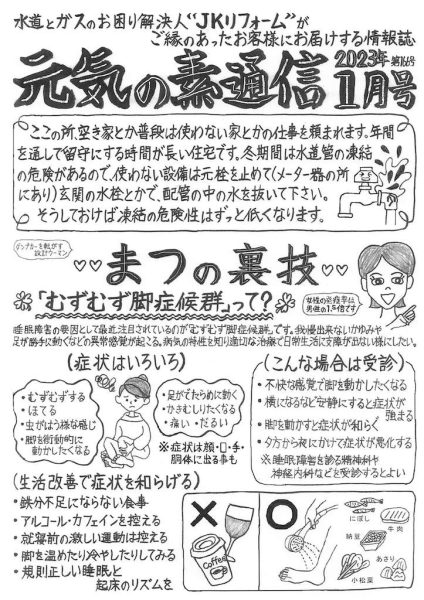 水道とガスのお困り解決人“JKリフォーム”が
ご縁のあったお客様にお届けする情報誌
元気の素通信
2023年
第166号
1月号
ここの所、空き家とか普段は使わない家とかの仕事を頼まれます。年間
を通して留守にする時間が長い住宅です。冬期間は水道管の凍結
の危険があるので、使わない設備は元栓を止めて(メーター器の所
にあり)玄関の水栓とかで、配管の中の水を抜いて下さい。
そうしておけば凍結の危険性はずっと低くなります。
ダンプカーを転がす
設計ウーマン
まつの裏技
「むずむず脚症候群」って?
女性の発症率は
男性の1.5倍です
睡眠障害の要因として最近、注目されているのが「むずむず脚症候群」です。我慢出来ないかゆみや
足が勝手に動くなどの異常感覚が起こる。病気の特性を知り適切な治療で日常生活に支障が出ない様にしたい。
(症状はいろいろ)
・むずむずする
・ほてる
・虫がはう様な感じ
・脚を衝動的に
動かしたくなる
・足がでたらめに動く
・かきむしりたくなる
・痛い ・だるい
※症状は顔・口・手・
胴体に出る事も
(こんな場合は受診)
・不快な感覚で脚を動かしたくなる
・横になるなど安静にすると症状が
強まる
・脚を動かすと症状が和らぐ
・夕方から夜にかけて症状が悪化する
※睡眠障害を診る精神科や
神経内科などを受診するとよい
(生活改善で症状を和らげる)
・鉄分不足にならない食事
・アルコール・カフェインを控える
・就寝前の激しい運動は控える
・脚を温めたり冷やしたりしてみる
・規則正しい睡眠と
起床のリズムを
Coffee
にぼし
牛肉
納豆
あさり
小松菜